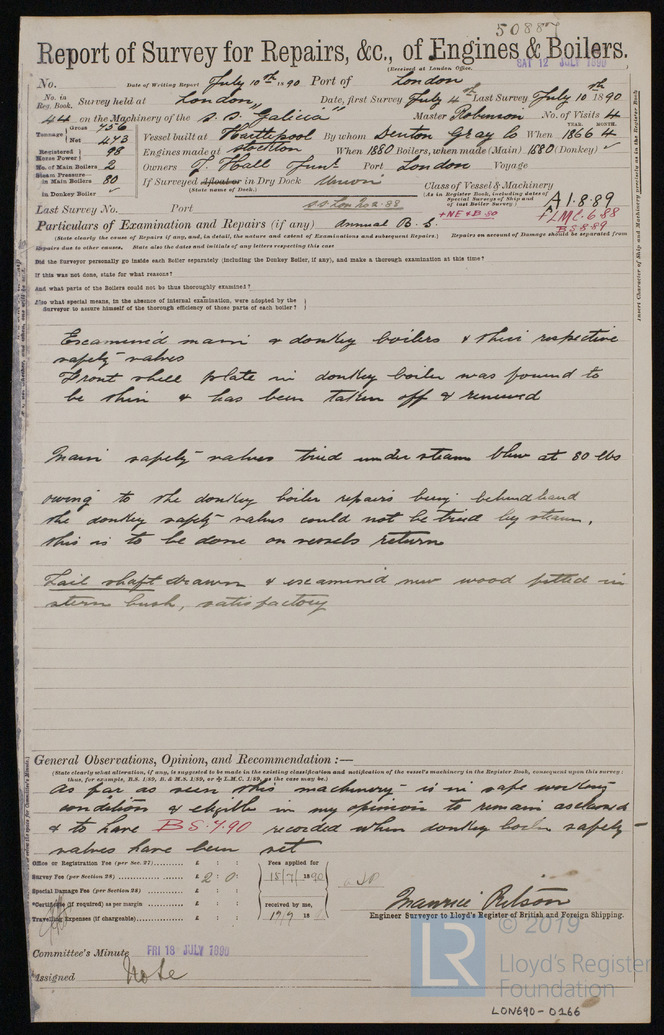 50887
Report of Survey for Repairs, &c., of Engines & Boilers.
(Received at London Office.
SAT 12 JULY 1890
No. Date of Writing Report July 10th 1890 Port of London
No. in Reg. Book. Survey held at London Date, first Survey July 4th Last Survey July 10th 1890
44 on the Machinery of the S.S. "Galicia" Master Robinson No. of Visits 4
Tonnage Gross 756 Net 473
Vessel built at Hartlepool By whom Denton Gray Co When 1866 4
YEAR. MONTH.
Registered Horse Power 98 Engines made at Stockton When 1880 Boilers, when made (Main) 1880 (Donkey) ✓
No. of Main Boilers 2 Owners J. Hall Junr Port London Voyage
Steam Pressure in Main Boilers 80 If Surveyed Afloat or in Dry Dock Union
(State name of Dock.)
in Donkey Boiler ✓
Class of Vessel & Machinery
(As in Register Book, including dates of Special Surveys of Ship and of last Boiler Survey)
A1.8.89
+LMC.6.88
BS.8.89
Last Survey No. Port
+NE&B.80
Particulars of Examination and Repairs (if any) Annual B.S.
(State clearly the cause of Repairs if any, and, in detail, the nature and extent of Examinations and subsequent Repairs.) Repairs on account of Damage should be separated from
Repairs due to other causes. State also the dates and initials of any letters respecting this case
Did the Surveyor personally go inside each Boiler separately (including the Donkey Boiler, if any), and make a thorough examination at this time?
If this was not done, state for what reasons?
And what parts of the Boilers could not be thus thoroughly examined?
Also what special means, in the absence of internal examination, were adopted by the
Surveyor to assure himself of the thorough efficiency of those parts of each boiler?
Examined main & donkey boilers & their respective
safety valves
Front shell plate in donkey boiler was found to
be thin & has been taken off & renewed
Main safety valves tried under steam blew at 80 lbs
owing to the donkey boiler repairs being behindhand
the donkey safety valves could not be tried by steam,
this is to be done on vessels return
Tail shaft drawn & examined new wood fitted in
stern bush, satisfactory
General Observations, Opinion, and Recommendation:—
(State clearly what alteration, if any, is suggested to be made in the existing classification and notification of the vessel's machinery in the Register Book, consequent upon this survey;
thus, for example, B.S. 1/89, B. & M.S. 1/89, or L.M.C. 1/89, as the case may be.)
As far as seen this machinery is in safe working
condition & eligible in my opinion to remain as classed
& to have BS.7.90 recorded when donkey boiler safety
valves have been set
Office or Registration Fee (per Sec. 27) £ : :
Fees applied for
Survey Fee (per Section 28) £ 2 : 0 :
18/7/1890
Special Damage Fee (per Section 28) £ : :
*Certificate (if required) as per margin £ : :
received by me,
Travelling Expenses (if chargeable) £ : :
17/9 18
Maurice Pitson
Engineer Surveyor to Lloyd's Register of British and Foreign Shipping.
Committee's Minute FRI 18 JULY 1890
Assigned Note
LR
© 2019
Lloyd's Register
Foundation
LON690-0266
Insert Character of Ship and Machinery precisely as in the Register Book